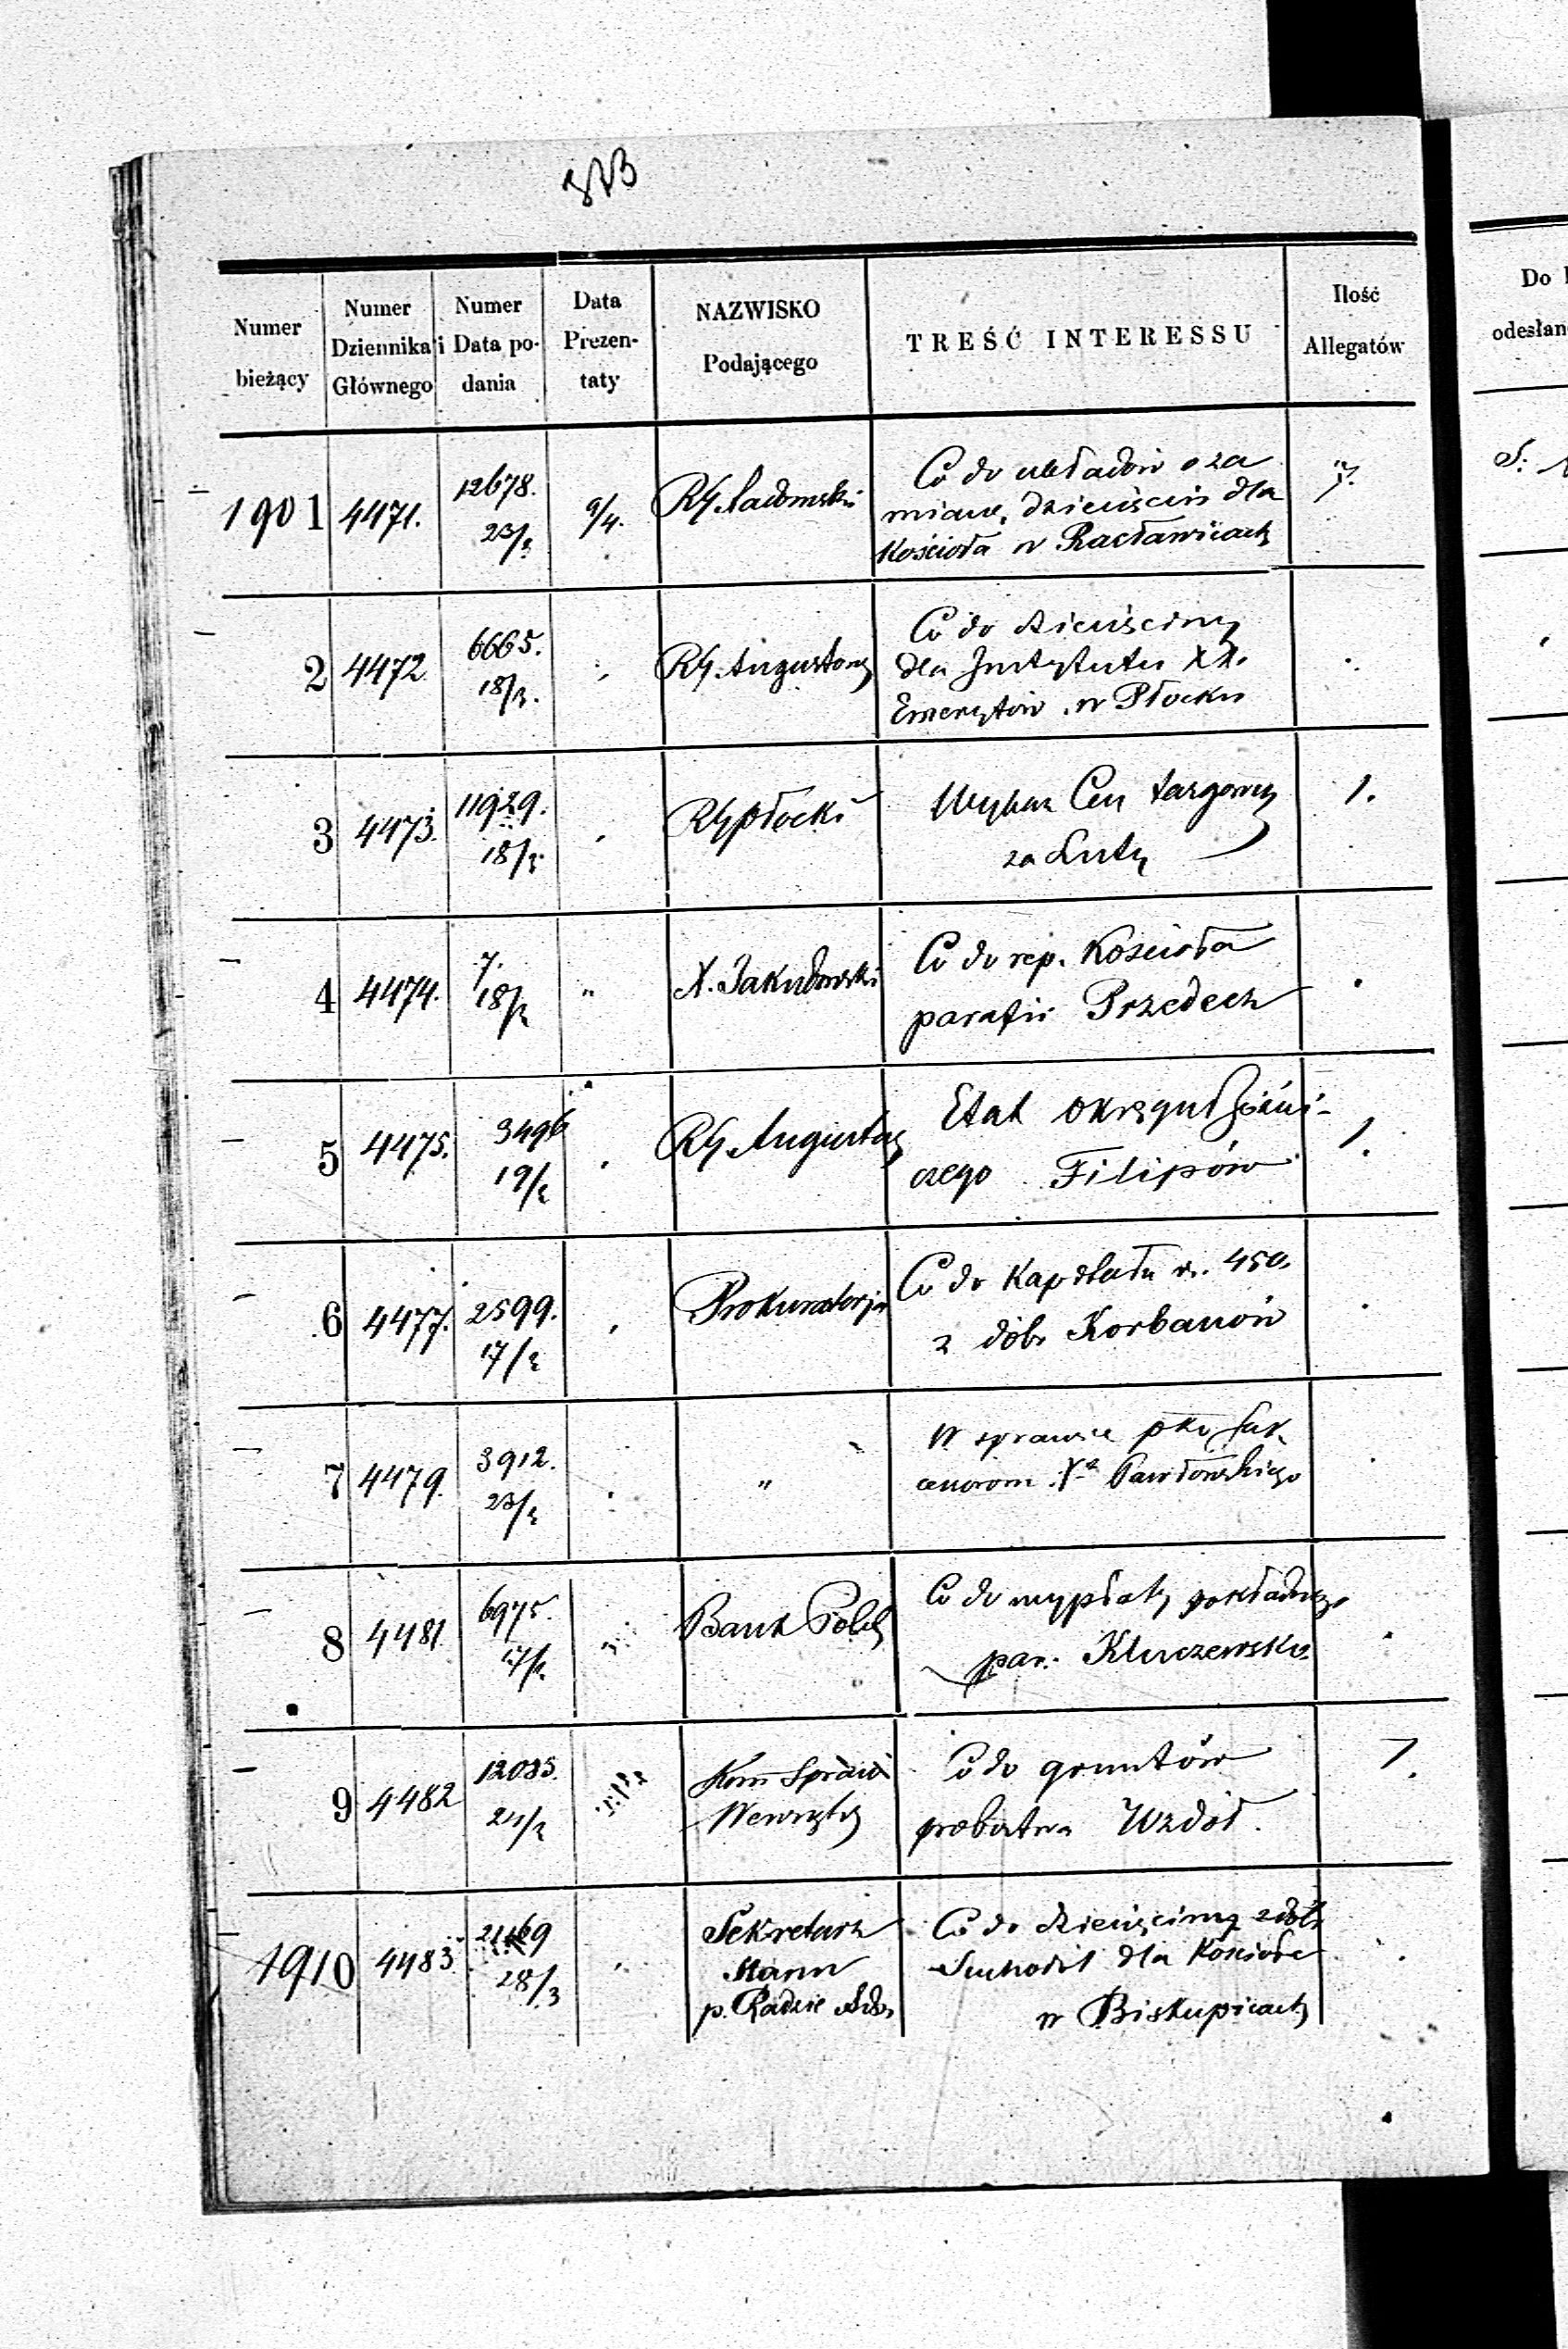 Numer bieżący
Numer Dziennika Głównego
Numer i Data podania
Data Prezentaty
NAZWISKO Podającego
TREŚĆ INTERESSU
Ilość Allegatów
Do
odesłan
1901 4471. 12678. 23/3 9/4. RG. Radomski
Co do układów o za
mianę dzieścin dla
Kościoła w Racławicach
2 4472 6665. 18/3. RG. Augustows
Co do dzieścciny
dla Instytutu XX.
Emerytów w Płocku
3 4473. 11929. 18/3. RG Płocki
Wykaz Cen targowy
za Luty
1.
4 4474. 7. 18/3 " X. Jakubowski
Co do rep. Kościoła
parafii Przedecz
5 4475. 3496 19/3 RG. Augustow
Etat okręgu Bożni-
czego Filipów
1.
6 4477. 2599. 17/3 Prokuratorja
Co do Kapitału r. 450.
z dóbr Korbanów
7 4479. 3912. 23/3 "
W sprawie pko Suk
cessorom Xa Pawłowskiego
8 4481 6975. 17/3 Bank Polsk
Co do wypłaty pokładnego
par. Kluczewsko
9 4482 12085. 24/3 Kom Spraw
Wewnętrz
Co do gruntów
probostwa Wzdół.
7.
1910 4483 28/3 Sekretarz
Stanu
p. Radzie Adm
Co do dzieściny z dóbr
Suchodół dla Kościoła
w Biskupicach